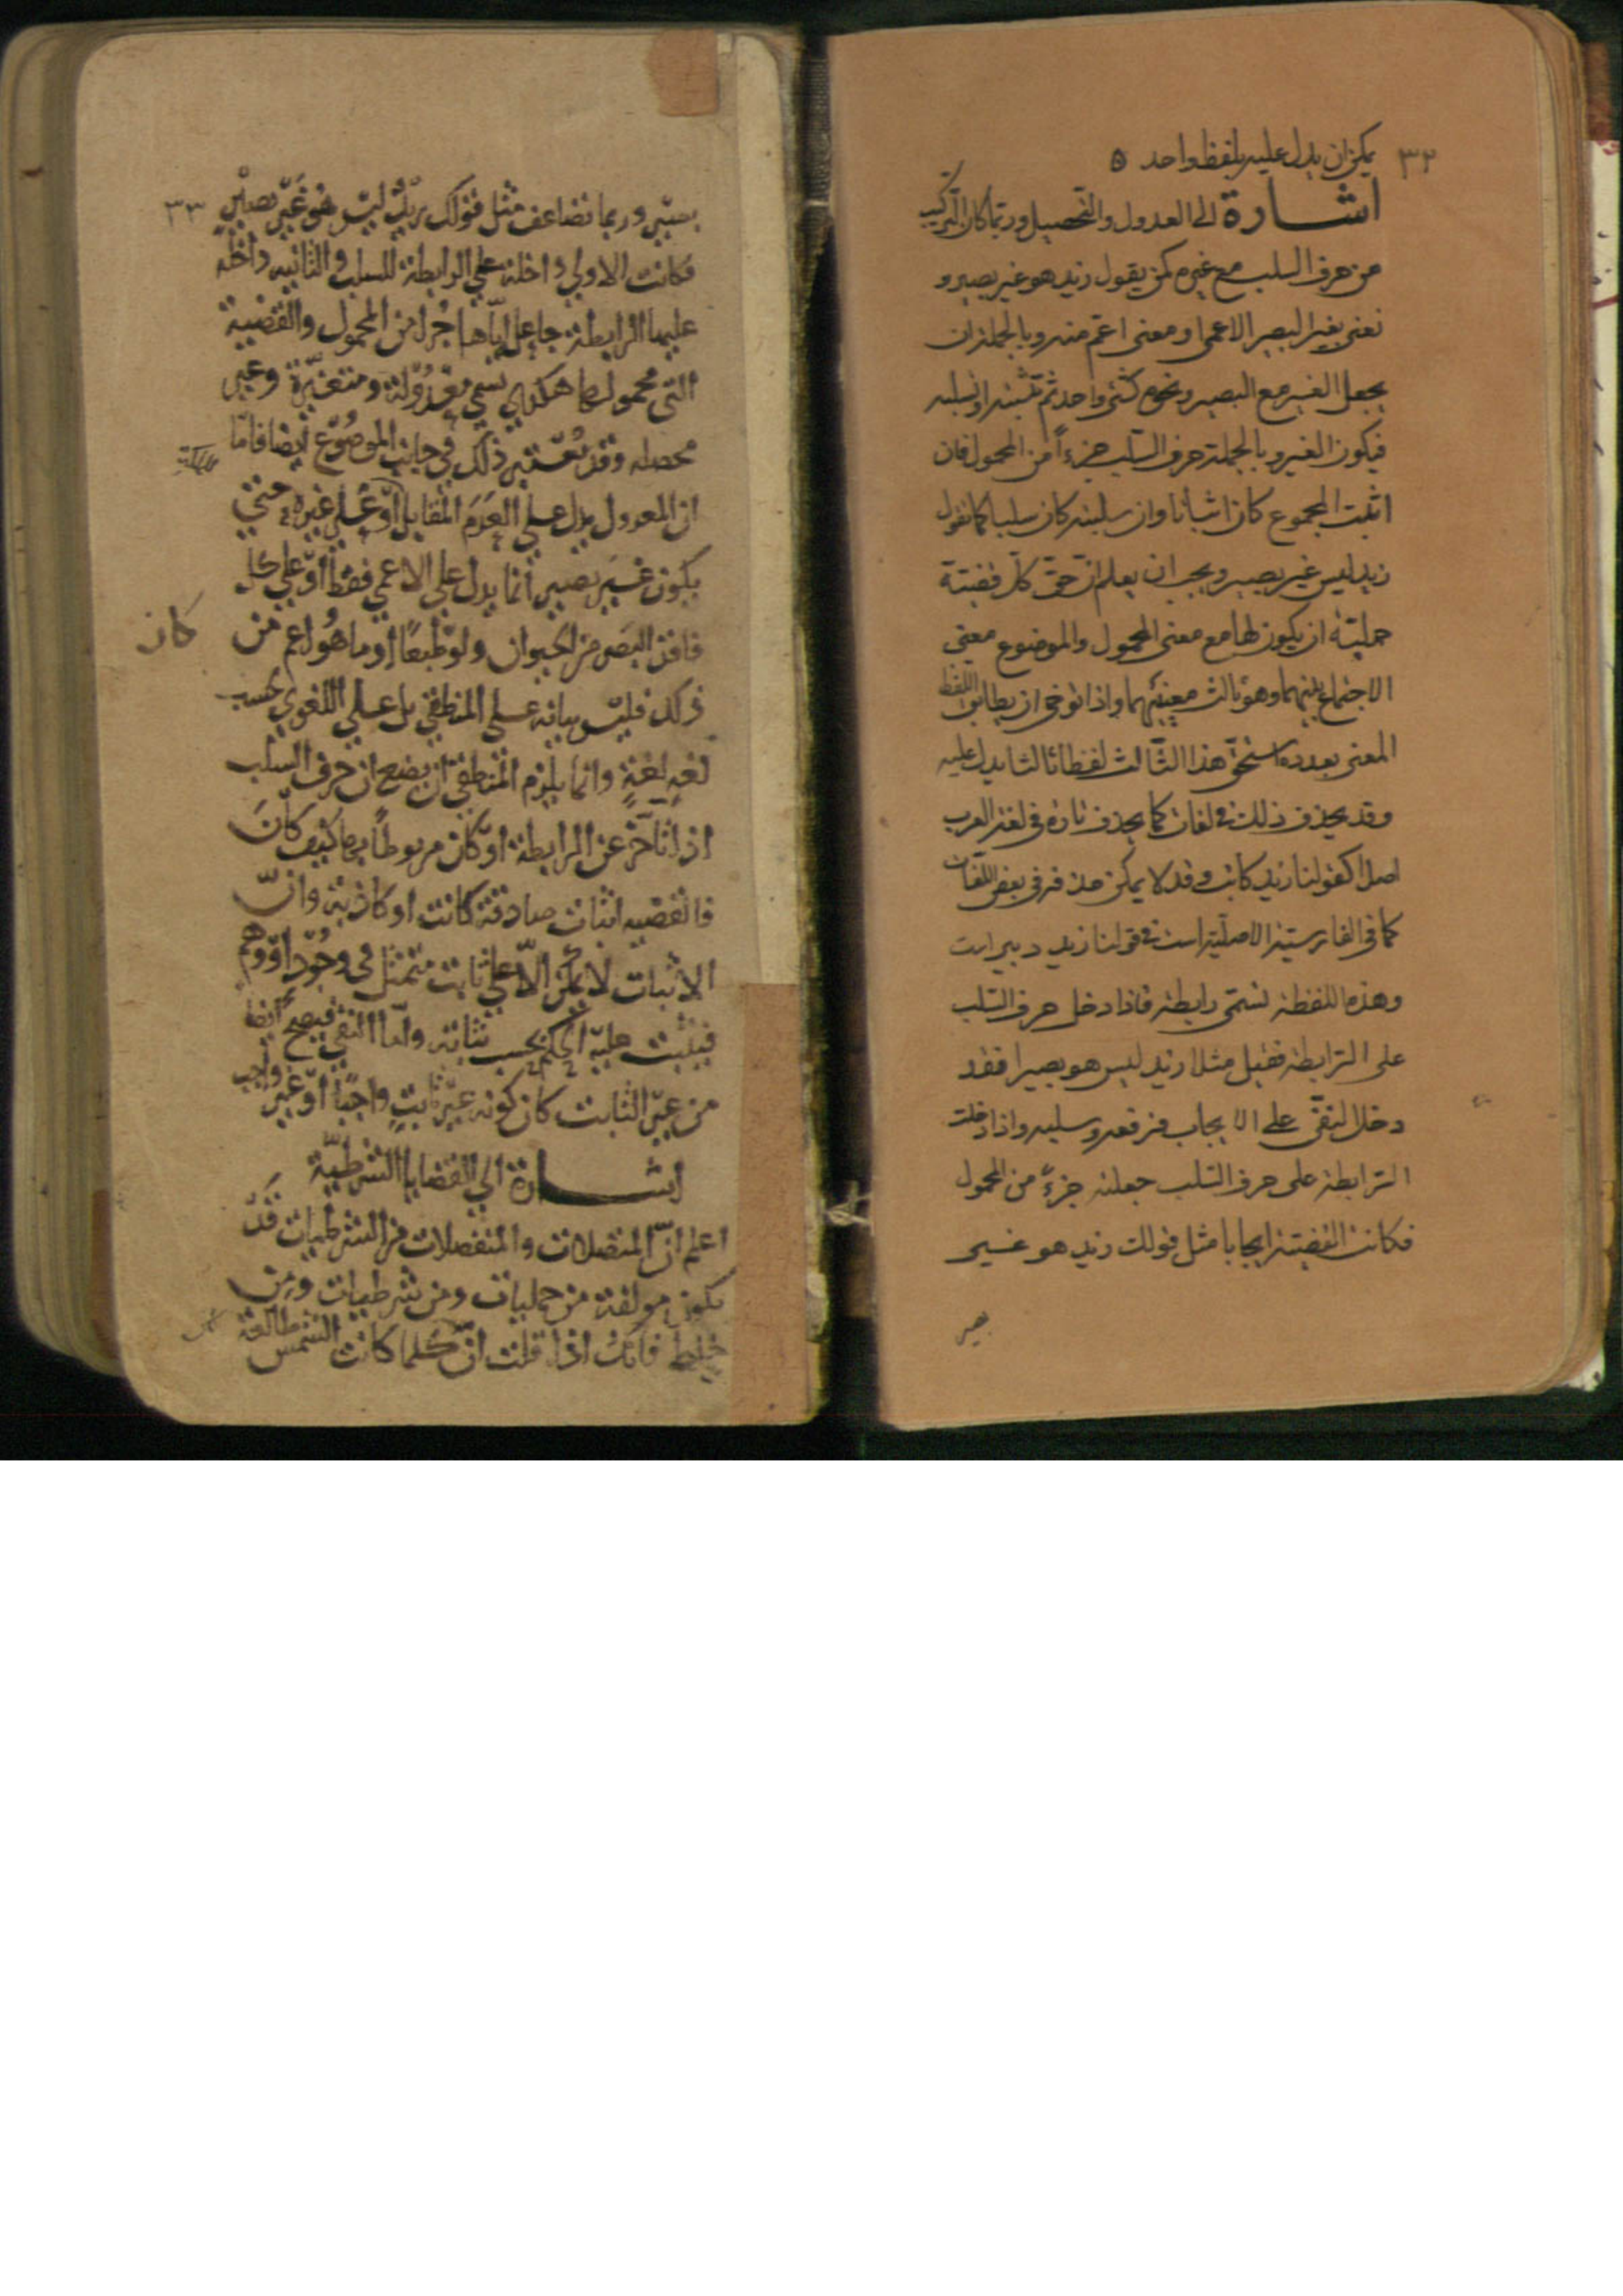 ٣٢
يمكن ان يدل عليه بلفظ واحد ٥
اشارة الى العدول والتحصيل وربّما كان التركيب
من حرف السلب مع غيره كمن يقول زيد هو غير بصير و
نعنى بغير البصير الاعمى او معنى اعمّ منه وبالجملة ان
يجعل الغير مع البصير ونحوه كشئ واحد ثم تثبته او تسلبه
فيكون الغير وبالجملة حرف السّلب جزءاً من المحمول فان
اثبت المجموع كان اثباتا وان سلبته كان سلبا كما تقول
زيد ليس غير بصير ويجب ان يعلم انّ حقّ كلّ قضيّة
حمليّة ان يكون لها مع معنى المحمول والموضوع معنى
الاجتماع بينهما وهو ثالث معنييهما واذا توخى ان يطابق اللفظ
المعنى بعدده استحقّ هذا الثّالث لفظا ثالثا يدل عليه
وقد يحذف ذلك فى لغات كما يحذف تارة فى لغة العرب
اصلا كقولنا زيد كاتب وقد لا يمكن حذفه فى بعض اللّغات
كما فى الفارسيّة الاصليّة است فى قولنا زيد دبير است
وهذه اللفظة تسمّى رابطة فاذا دخل حرف السّلب
على الرّابطة فقيل مثلا زيد ليس هو بصيرا فقد
دخل النفى على الايجاب فرفعه وسلبه واذا دخلت
الرّابطة على حرف السّلب جعلته جزءً من المحمول
فكانت القضيّة ايجابا مثل قولك زيد هو غير
بصير
٣٣
بصير وربما تضاعف مثل قولك زيد ليس هو غير بصير
فكانت الاولي داخلة علي الرابطة للسلب والثانيه داخله
عليها الرابطة جاعل اياها جزأ من المحمول والقضية
التى محمولها هكذي تسمي معدولة ومتغيرة وغير
محصله وقد يعتبر ذلك في جانب الموضوع أيضا فامّا
ان المعدول يدل علي العدم المقابل او علي غيره حتي
يكون غير بصير انما يدل علي الاعمي فقط او علي كل
كان
فاقد البصر من الحيوان ولو طبعاً او ما هو اعم من
ذلك فليس بيانه علي المنطقي بل علي اللغوي بحسب
لغه لغة وانما يلزم المنطقي ان يضع ان حرف السلب
اذا تأخر عن الرابطة او كان مربوطاً بها كيف كان
فالقضيه اثبات صادقة كانت او كاذبة وانّ
الاثبات لا يمكن الّا علي ثابت متمثل في وجود او وهم
فيثبت عليه الحكم بحسب ثباته وامّا النفي فيصح أيضا
من غير الثابت كان كونه غير ثابتٍ واجبًا او غير واجب
اشارة الي القضايا الشرطيّة
اعلم انّ المتصلات والمنفصلات من الشرطيات قد
تكون مولفة من حمليات ومن شرطيات ومن
خليط فانك اذا قلت ان كلما كانت الشمس طالعة